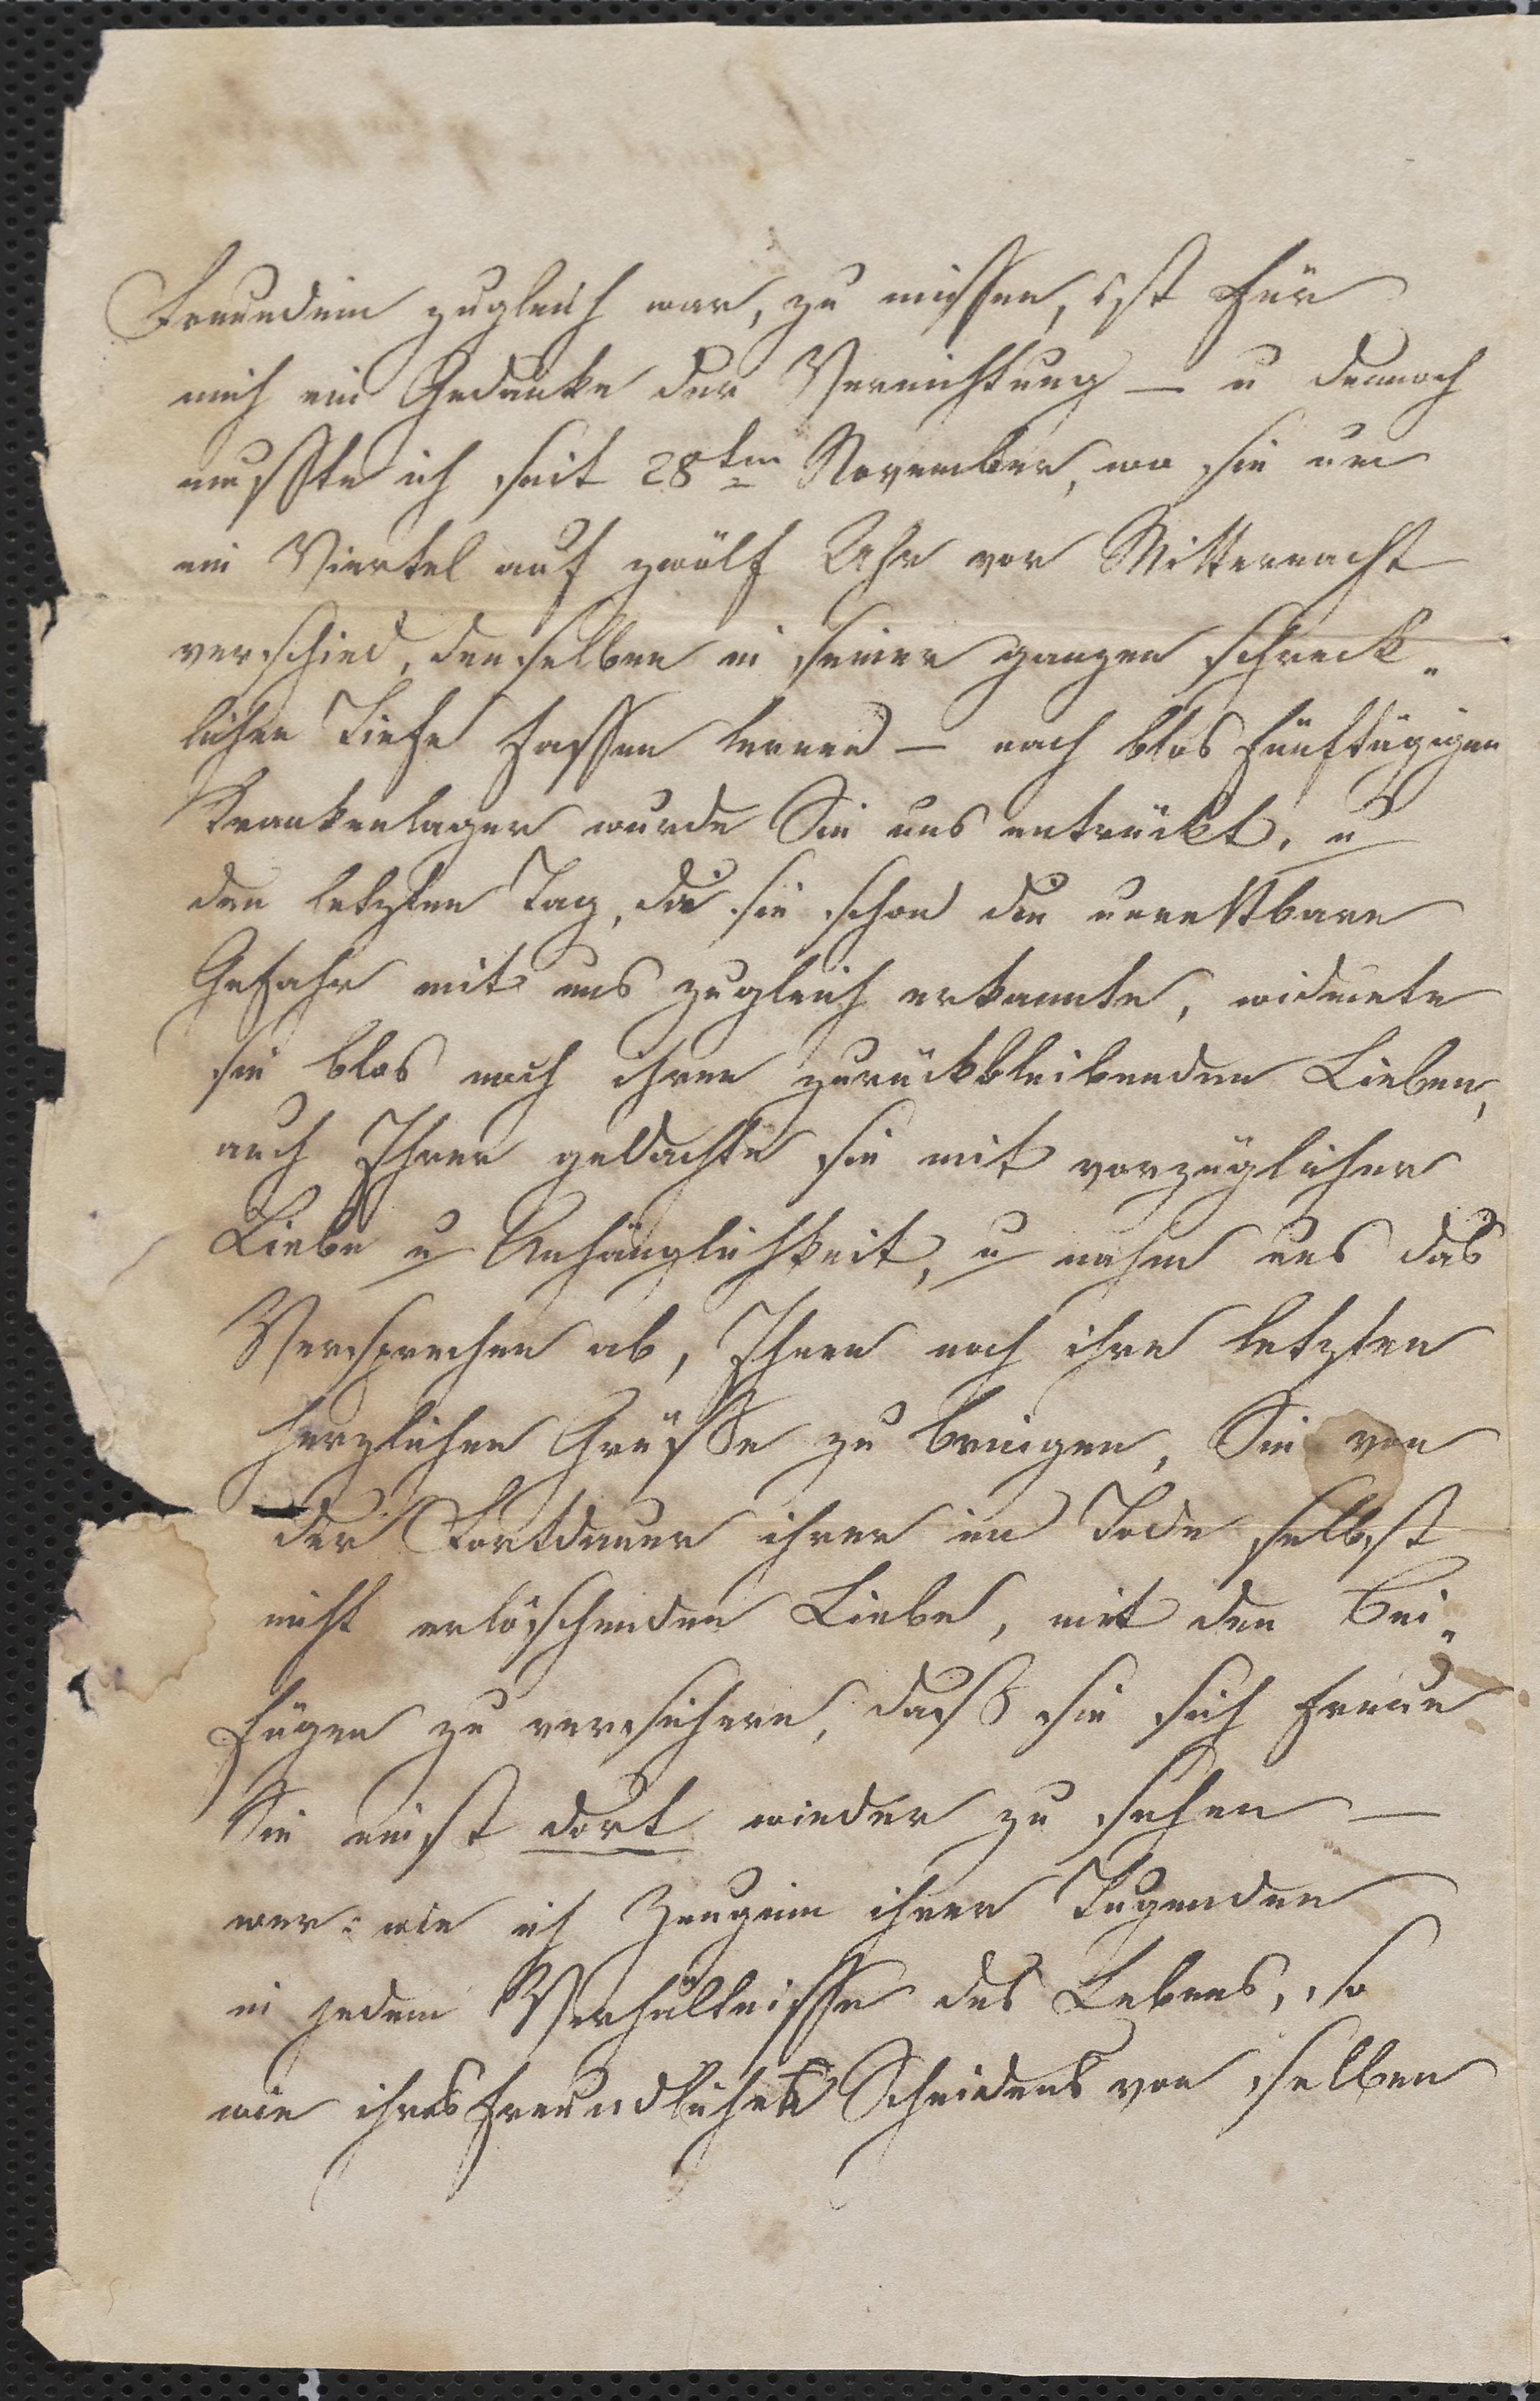 Freundin zugleich war, zu missen, ist für
mich ein Gedanke der Vernichtung – u dennoch
musste ich seit 28ten November, wo sie um
ein Viertel auf zwölf Uhr vor Mitternacht
verschied, denselben in seiner ganzen schreck„
lichen Tiefe fassen lernen – nach blos fünftägigen
Krankenlager wurde Sie uns entrückt, u
den letzten Tag, da sie schon die unrettbare
Gefahr mit uns zugleich erkannte, widmete
sie blos noch ihren zurückbleibenden Lieben,
auch Ihrer gedachte sie mit vorzüglicher
Liebe u Anhänglichkeit, u nahm uns das
Versprechen ab, Ihnen noch ihre letzten
herzlichen Grüße zu bringen, Sie von
der Fortdauer ihrer im Tode selbst
nicht erlöschenden Liebe, mit dem Bei„
fügen zu versichern, daß sie sich freue
Sie einst dort wieder zu sehen –
wer: wie ich Zeugin ihrer Tugenden
in jedem Verhältnisse des Lebens, so
wie ihres freundlichen Scheidens von selben